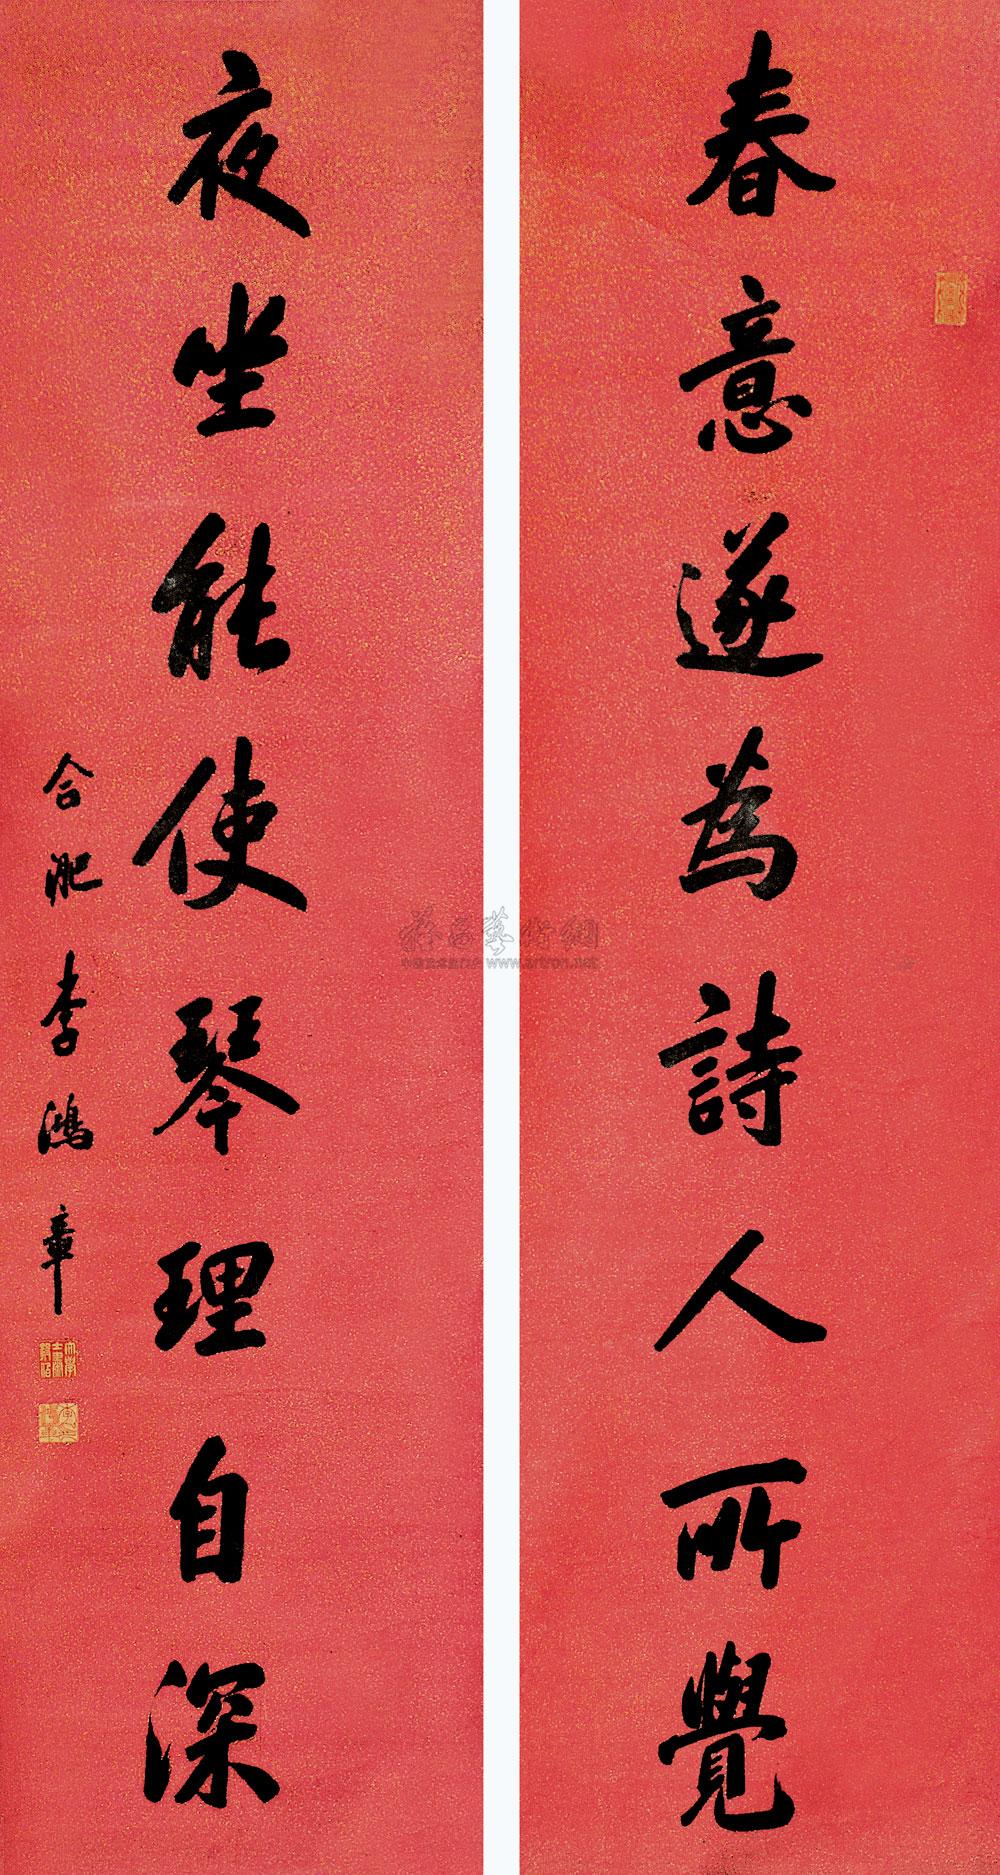 春意遂為詩人所覺
夜坐能使琴理自深
合肥李鴻章
www.artron.net